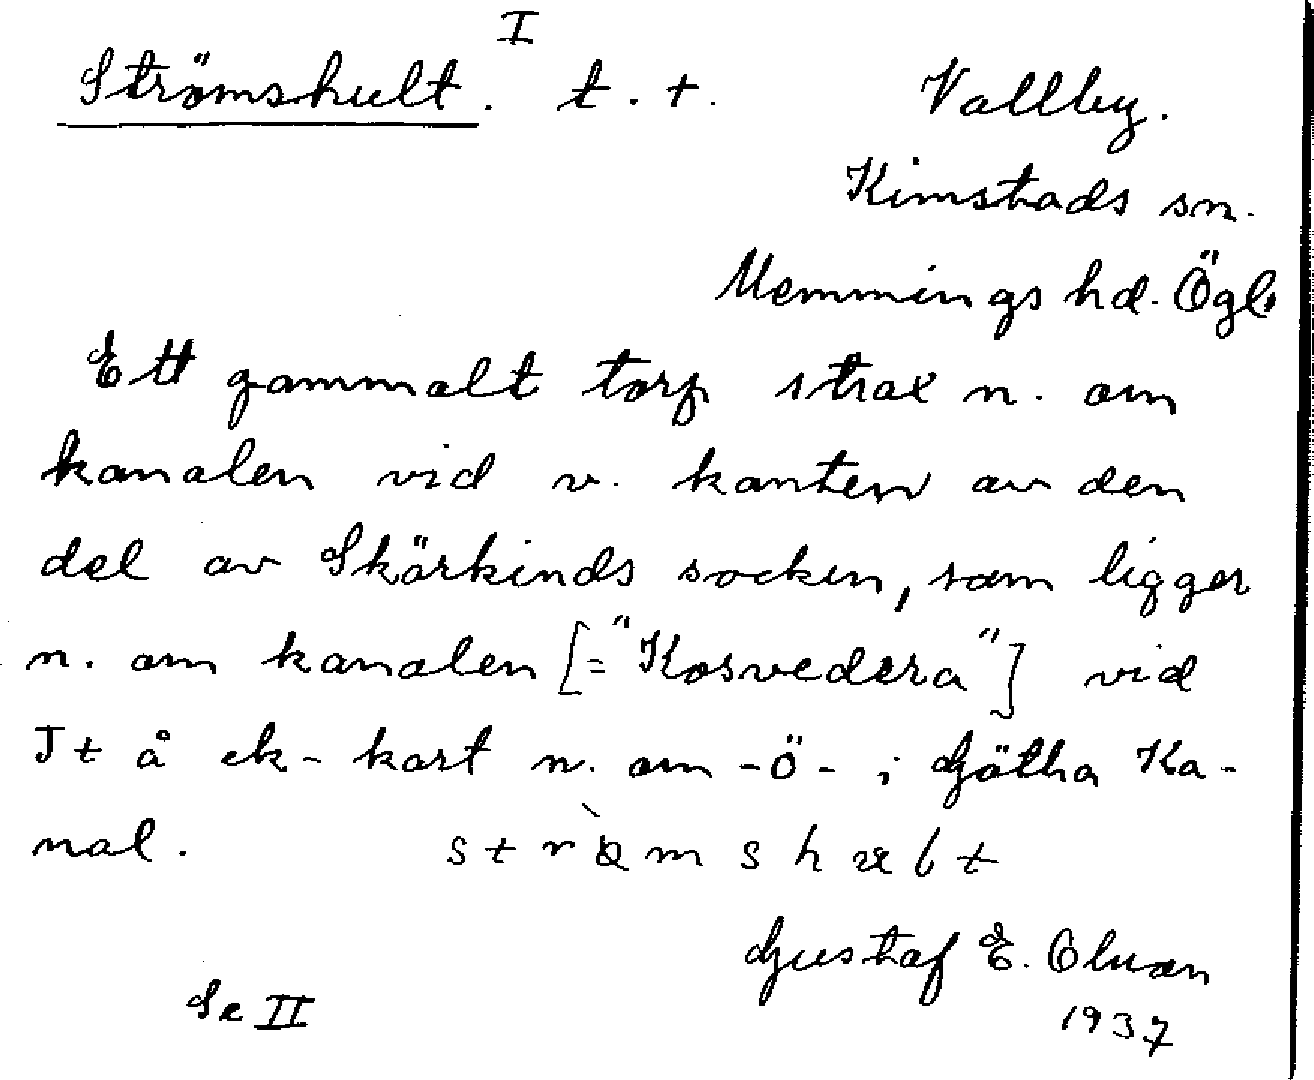 I
Strömshult. t. +. Vallby.
Kimstads sn.
Memmings hd. Ögl.
Ett gammalt torp strax n. om
kanalen vid v. kanten av den
del av Skärkinds socken, som ligger
n. om kanalen [="Kosvedera"] vid
Jt å ek-kart n. om -ö- i Götha Ka-
nal.
Gustaf E. Olson
Se II
1937